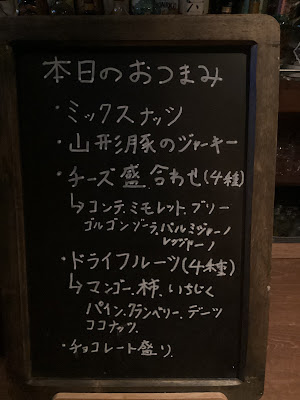 本日のおつまみ
・ミックスナッツ
・山形豚のジャーキー
・チーズ盛合わせ(4種)
↳コンテ.ミモレット.ブリー
ゴルゴンゾーラ.パルミジャーノ
レッジャーノ
・ドライフルーツ(4種)
↳マンゴー.柿.いちじく
パイン.クランベリー.デーツ
ココナッツ.
・チョコレート盛り.